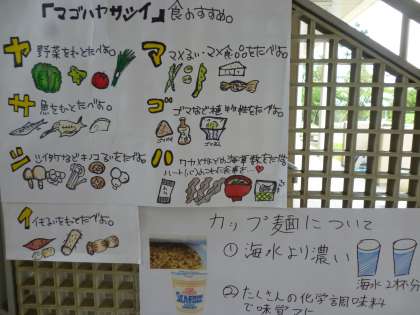 『マゴハヤサシイ』食おすすめ。
マ
マメるい・マメ食品をたべよ。
ゴ
ゴマなど種ものをたべよ。
ハ
ワカメなどの海草数をたべよ
ヤ
野菜をもっとたべよ。
サ
魚をもっとたべよ。
シ
シイタケなどキノコるいをたべよ。
イ
イモるいをもっとたべよ。
カップ麺について
①海水より濃い
海水2杯分
②たくさんの化学調味料
で味覚